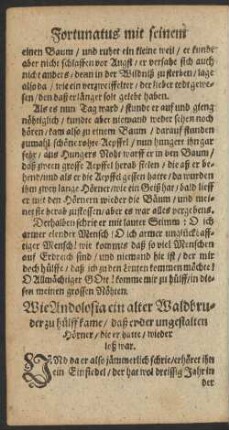 Fortunatus mit seinem
einen Baum / und ruhet ein kleine weil / er kunde
aber nicht schlaffen vor Angst / er versahe sich auch
nicht anders / denn in der Wildniß zu sterben / lage
also da / wie ein verzweiffelter / der lieber todt gewe-
sen / den daß er länger solt gelebt haben.
Als es nun Tag ward / stunde er auf und gieng
nöhtiglich / kundte aber niemand weder sehen noch
hören / kam also zu einem Baum / darauf stunden
zumahl schöne rohte Aepffel / nun hungert ihn gar
sehr / aus Hungers Noht warff er in den Baum /
daß zween grosse Aepffel herab fielen / die aß er be-
hend / und als er die Aepffel gessen hatte / da wurden
ihm zwey lange Hörner / wie ein Geiß hat / bald lieff
er mit den Hörnern wieder die Bäum / und mei-
net sie herab zustossen / aber es war alles vergebens.
Derhalben schrie er mit lauter Stimm: O ich
armer elender Mensch! O ich armer unglückhaff-
tiger Mensch! wie kommts daß so viel Menschen
auf Erdreich sind / und niemand hie ist / der mir
doch hülffe / daß ich zu den Leuten kommen möchte!
O Allmächtiger GOtt! komme mir zu hülff / in die-
sen meinen grossen Nöhten.
Wie Andolosia ein alter Waldbru-
der zu hülff kame / daß er der ungestalten
Hörner / die er hatte / wieder
loß war.
UNd da er also jämmerlich schrie / erhöret ihn
ein Einsiedel / der hat wol dreissig Jahr in
der